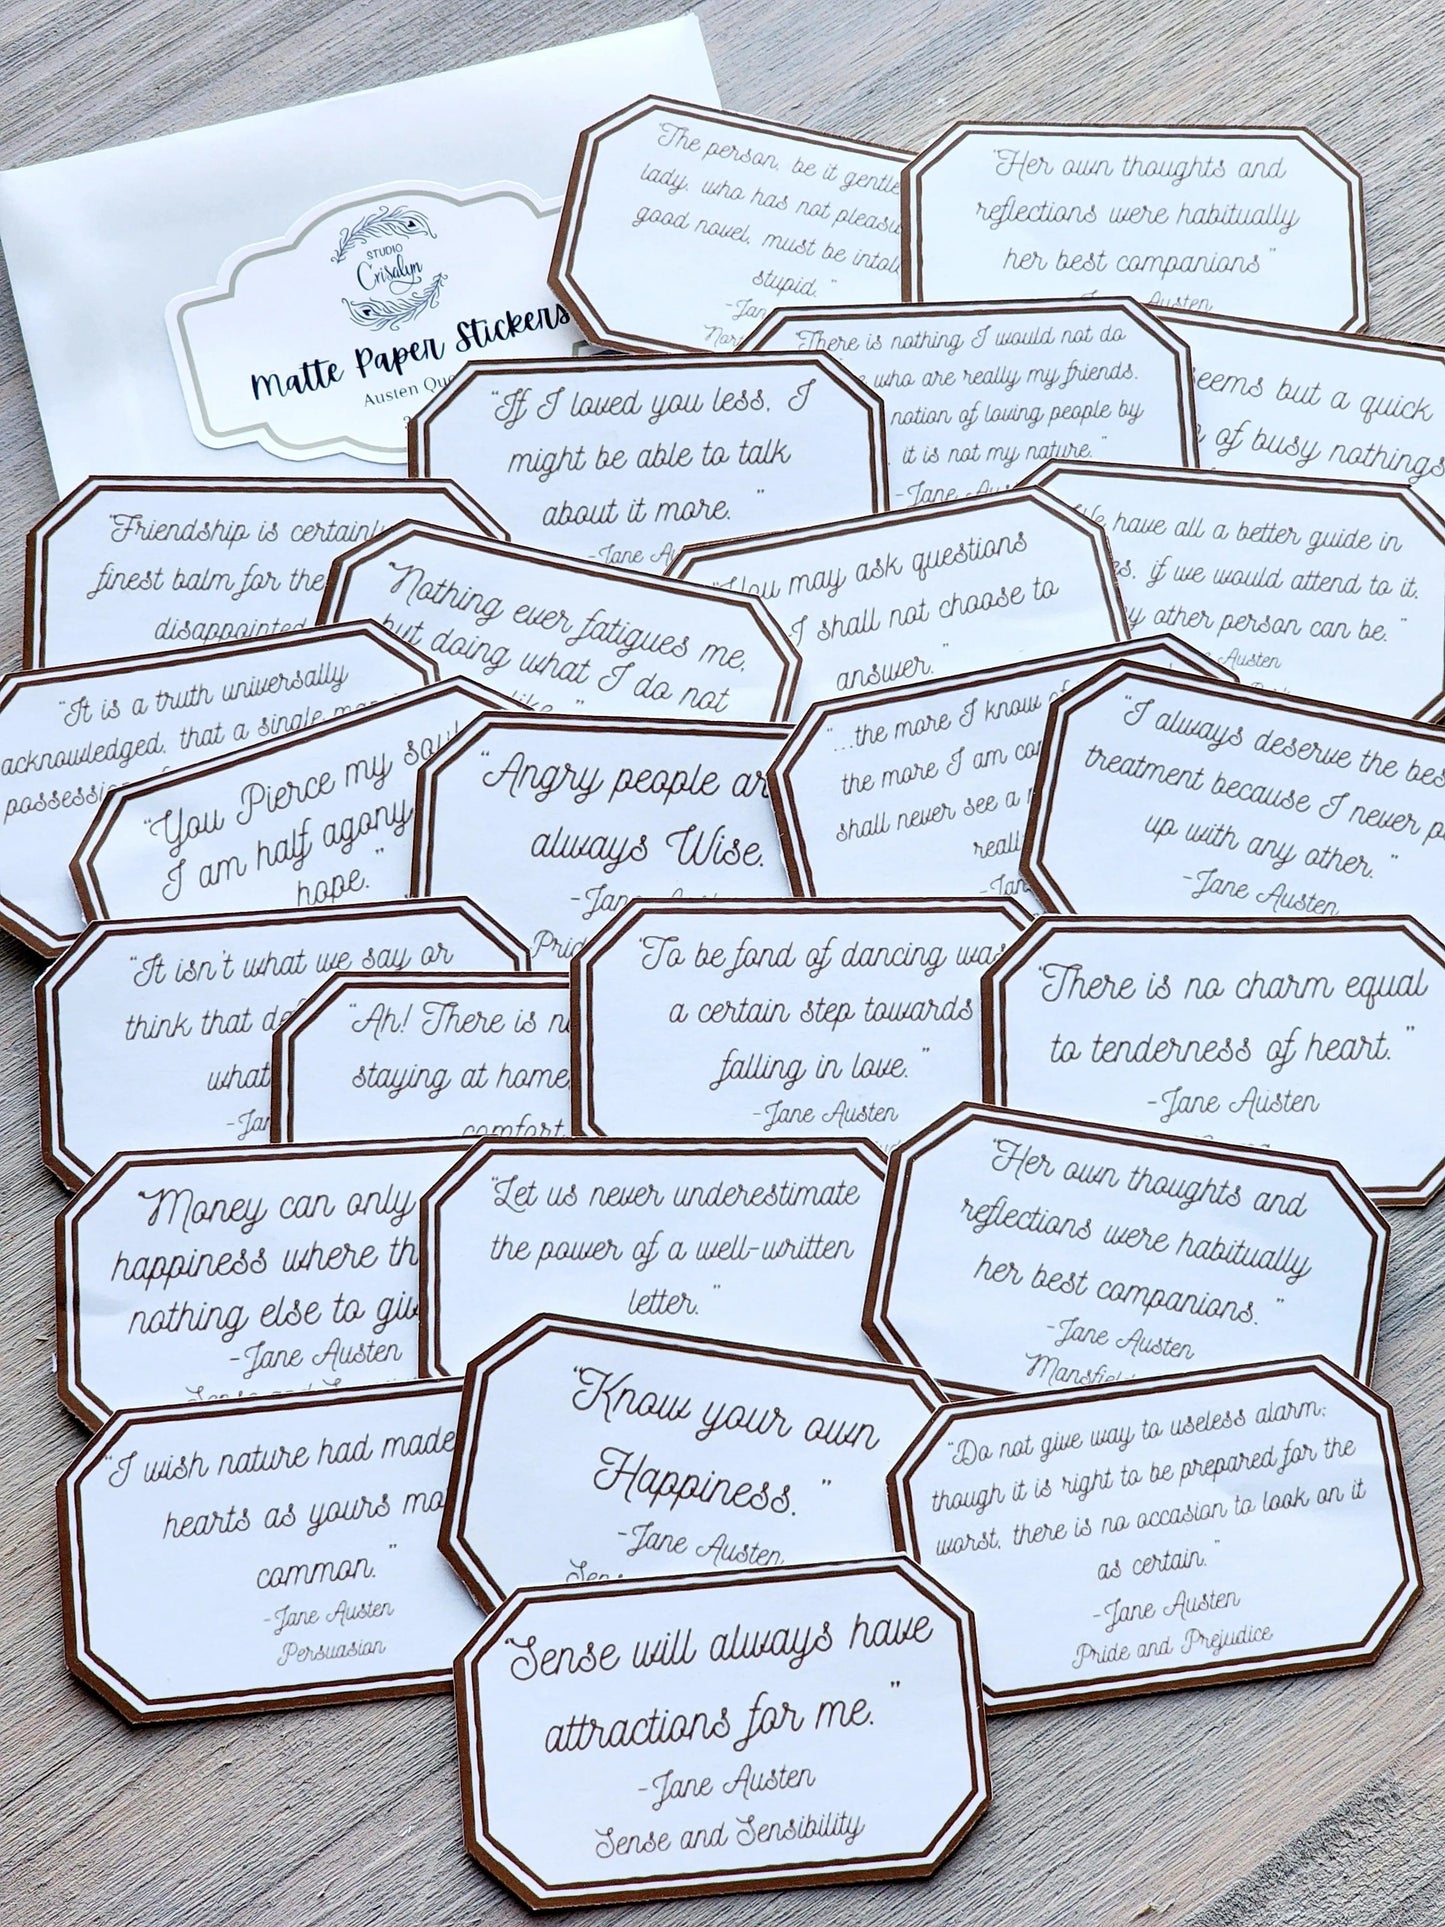 STUDIO
Crisalyn
Matte Paper Stickers
Austen
"The person, be it
lady, who has not
good novel, must be
stupid."
"Her own thoughts and
reflections were habitually
her best companions"
Austen
"There is nothing I would not do
who are really my friends.
notion of loving people by
it is not my nature."
-Jane
but a quick
of busy nothings
"If I loved you less, I
might be able to talk
about it more."
-Jane
"Friendship is
finest balm for the
disappointed
"Nothing ever fatigues me,
but doing what I do not
like."
"You may ask questions
I shall not choose to
answer."
We have all a better guide in
if we would attend to it,
other person can be."
Austen
"It is a truth universally
acknowledged, that a single
"You Pierce my soul
I am half agony
hope."
"Angry people
always Wise.
"...the more I know
the more I am
shall never see a
"I always deserve the
treatment because I never
up with any other."
-Jane Austen
"It isn't what we say or
think that
what
"Ah! There is
staying at home
comfort.
"To be fond of dancing was
a certain step towards
falling in love."
-Jane Austen
"There is no charm equal
to tenderness of heart."
-Jane Austen
"Money can only
happiness where
nothing else to
-Jane Austen
"Let us never underestimate
the power of a well-written
letter."
"Her own thoughts and
reflections were habitually
her best companions."
-Jane Austen
"I wish nature had made
hearts as yours
common."
-Jane Austen
Persuasion
"Know your own
Happiness."
-Jane Austen
"Do not give way to useless alarm;
though it is right to be prepared for the
worst, there is no occasion to look on it
as certain."
-Jane Austen
Pride and Prejudice
"Sense will always have
attractions for me."
-Jane Austen
Sense and Sensibility